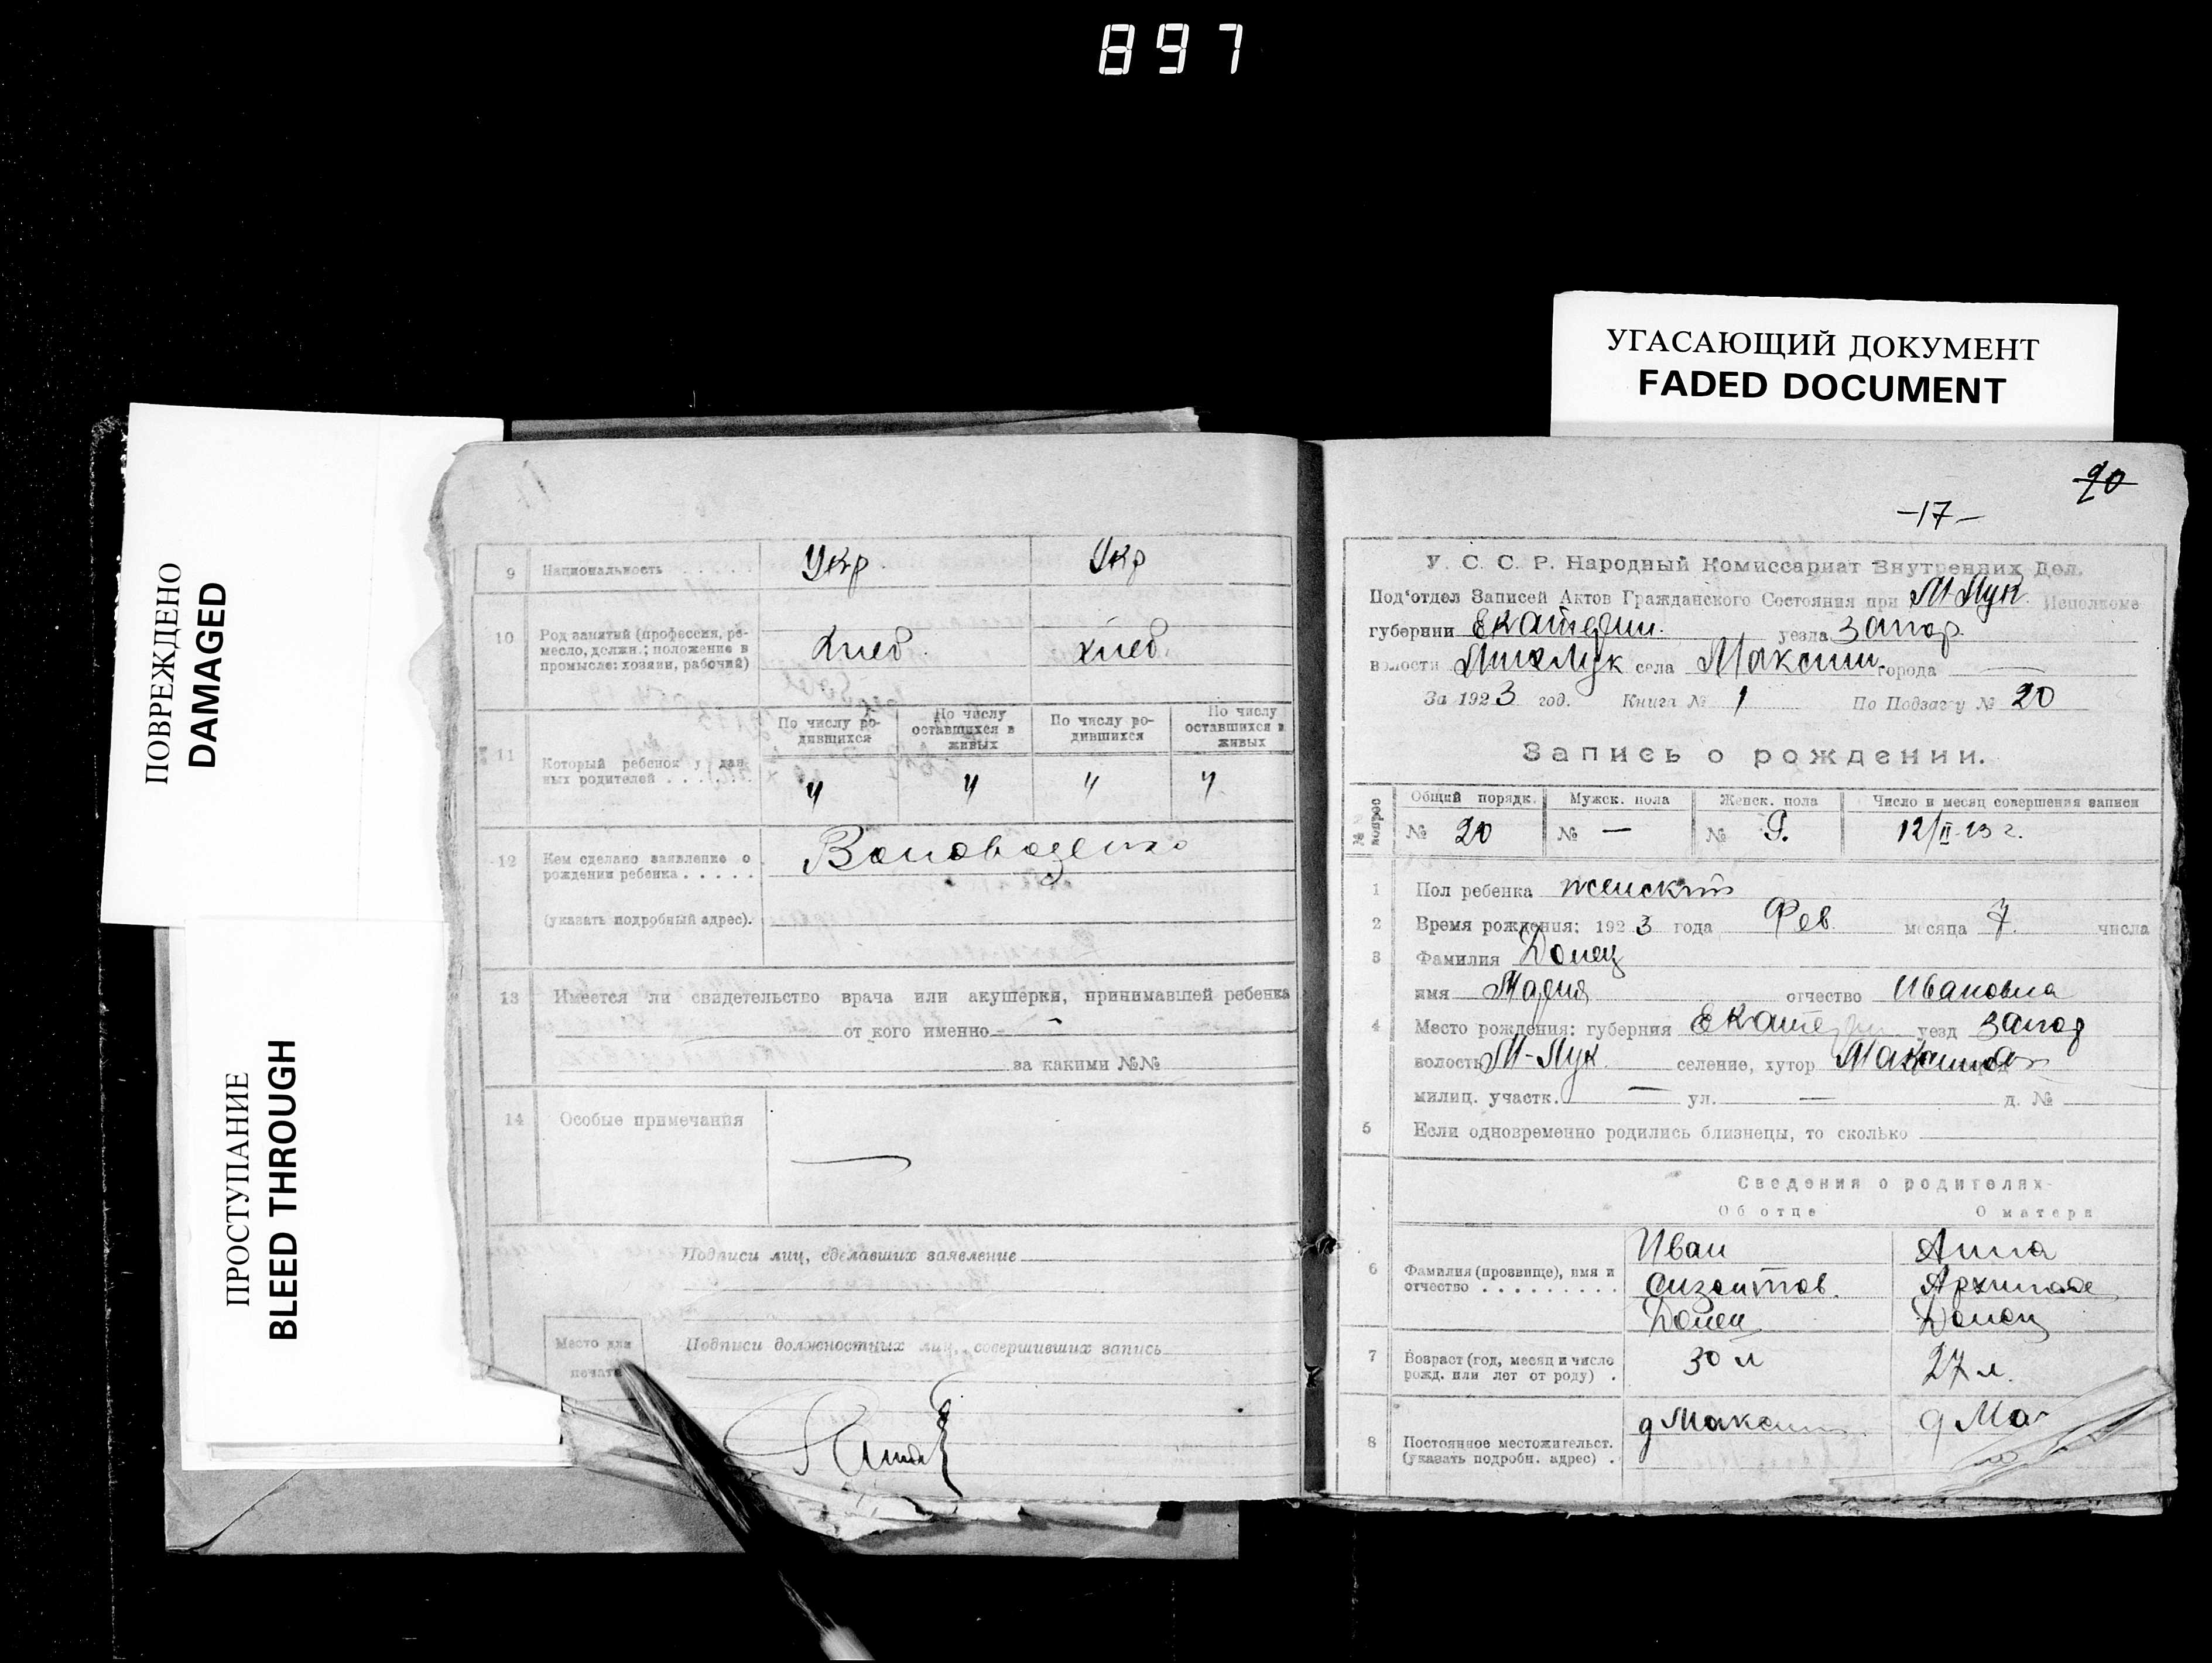 897
УГАСАЮЩИЙ ДОКУМЕНТ
FADED DOCUMENT
ПОВРЕЖДЕНО
DAMAGED
ПРОСТУПАНИЕ
BLEED THROUGH
9 Национальность . . . . . Укр. Укр
10 Род занятий (профессия, ре-
месло, должн.; положение в
промысле: хозяин, рабочий) Хлеб. хлеб
11 Который ребенок у дан-
ных родителей . . . .
По числу ро-
дившихся
По числу
оставшихся в
живых
По числу ро-
дившихся
По числу
оставшихся в
живых
" " " "
12 Кем сделано заявление о
рождении ребенка . . . . .
(указать подробный адрес).
13 Имеется ли свидетельство врача или акушерки, принимавшей ребенка
от кого именно -
за какими №№
14 Особые примечания —
Подписи лиц, сделавших заявление
Место для
печати
Подписи должностных лиц, совершивших запись
90
-17-
У. С. С. Р. Народный Комиссариат Внутренних Дел.
Под'отдел Записей Актов Гражданского Состояния при М-Лук. Исполкоме
губернии Екатерин. уезда Запор.
волости села Максим. города —
За 1923 год. Книга № 1 По Подзагу № 20
Запись о рождении.
№ вопрос Общий порядк. Мужск. пола Женск. пола Число и месяц совершения записи
№ 20 № — № 9. 12/II-23 г.
1 Пол ребенка женский
2 Время рождения: 1923 года Фев. месяца 7. числа
3 Фамилия Донец
имя Мария отчество Ивановна
4 Место рождения: губерния Екатерин уезд Запор
волость М-Лук. селение, хутор
милиц. участк. — ул. — д. №
5 Если одновременно родились близнецы, то сколько
Сведения о родителях
Об отце О матери
6 Фамилия (прозвище), имя и
отчество . . . . . . . . .
Иван
Донец
Анна
Донец
7 Возраст (год, месяц и число
рожд. или лет от роду) . 30 л 27 л.
8 Постоянное местожительст.
(указать подробн. адрес) . д Максим д Ма